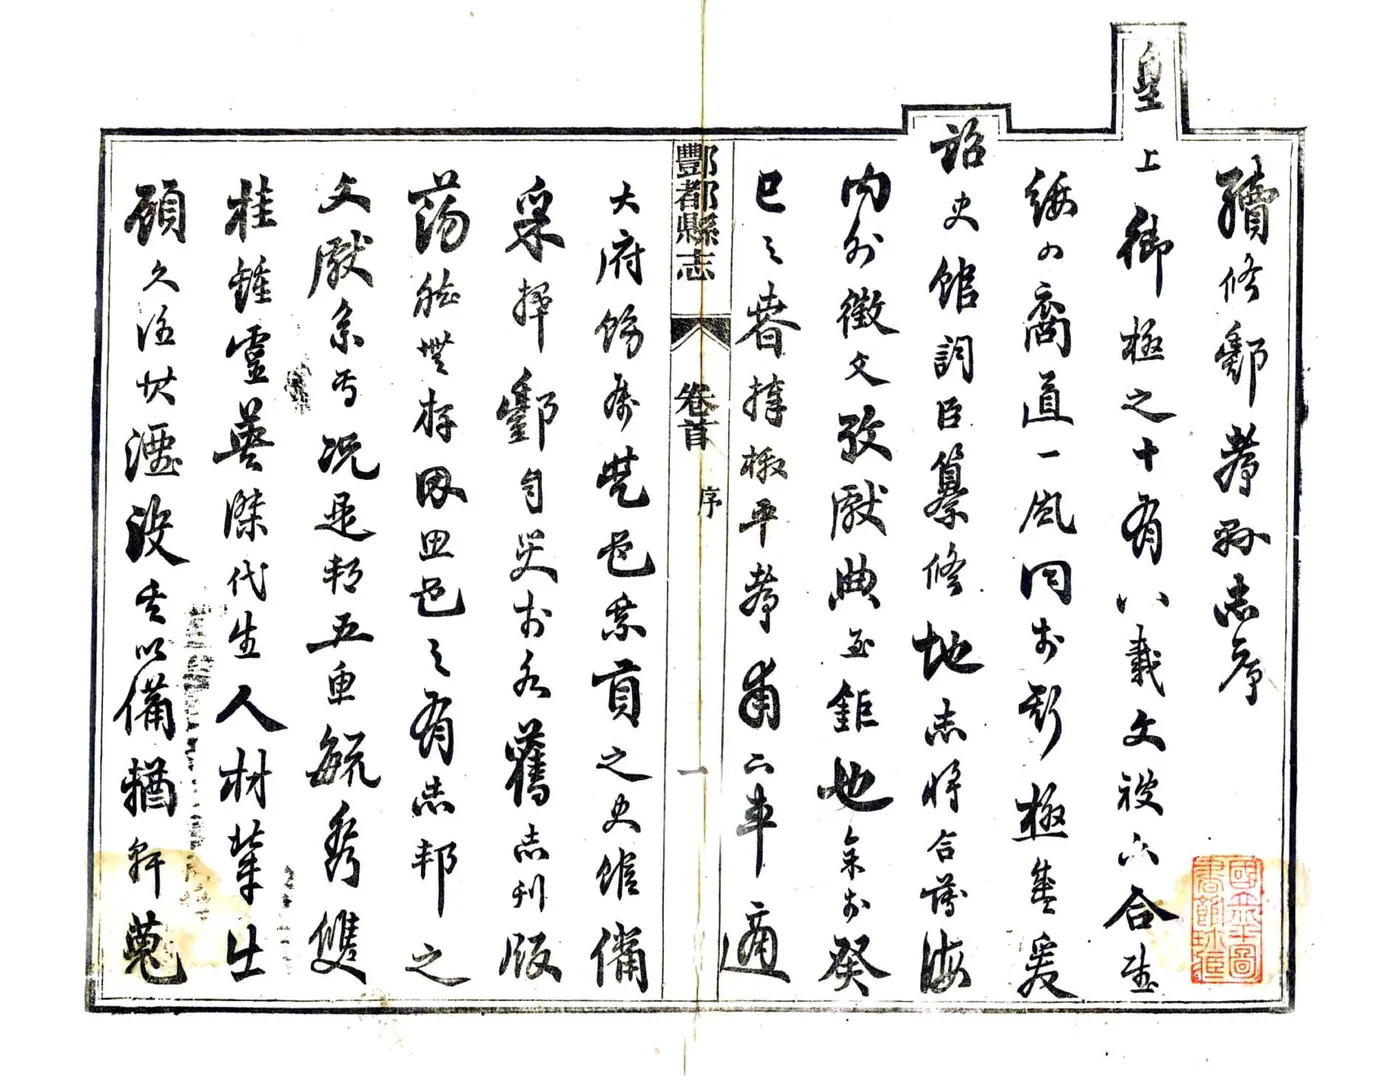 續修酆都縣志序
皇上御極之十有八載文被六合武
綏四裔道一風同於斯極盛爰
詔史館詞臣纂修地志將合薄海
內外徵文攷獻典至鉅也余於癸
巳之春捧檄平都甫下車適
酆都縣志 卷首 序 一
大府飭屬邑乘貢之史館備
采擇酆自燹於水舊志刊版
蕩然無存因思邑之有志邦之
文獻系焉況是邦五魚毓秀雙
桂鍾靈英傑代生人材輩出
顧久任其湮沒以備輶軒蒐
國立北平圖書館珍藏